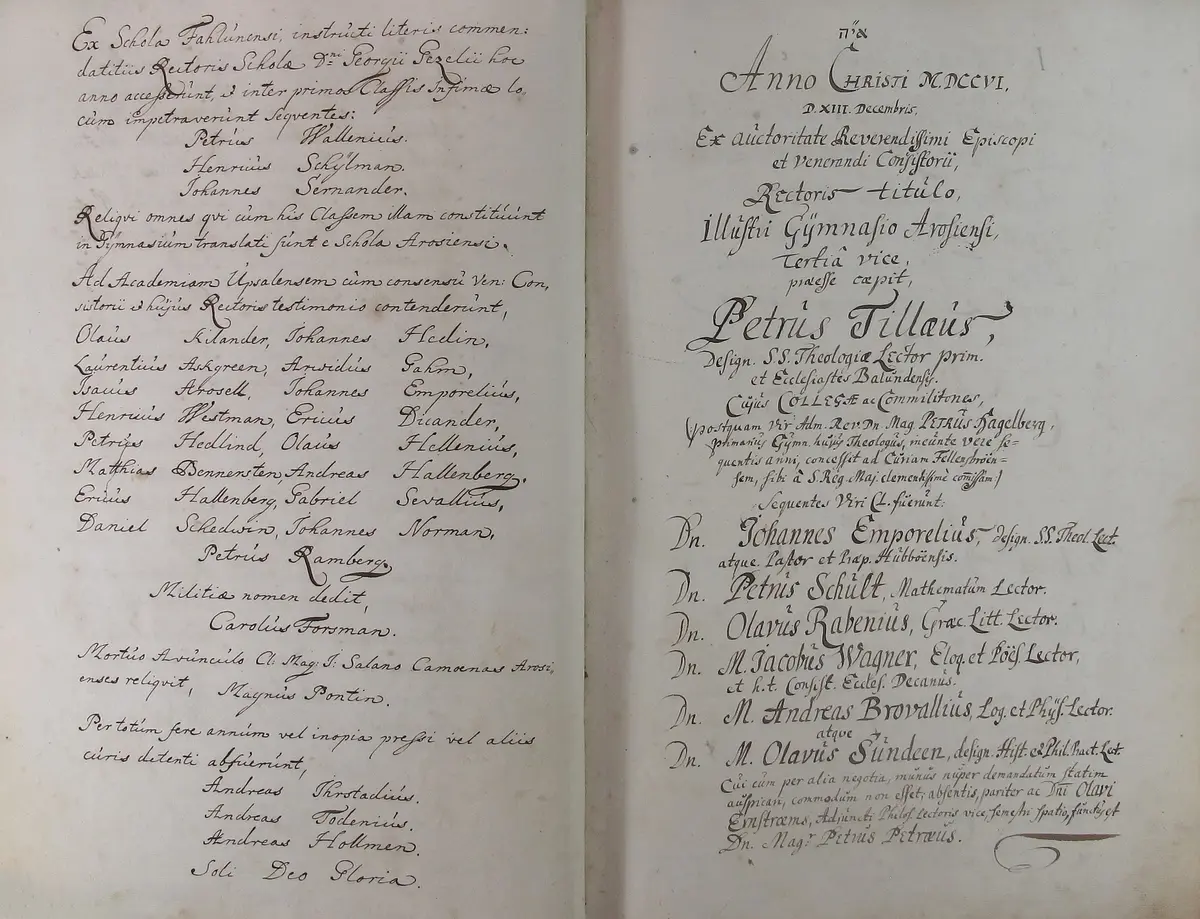 Ex Schola Fahlunensi, instructi literis commen:
datitiis Rectoris Scholæ Dni Georgii Gezelii hoc
anno accesserunt, & inter primos Classis Infimæ lo,
cum impetraverunt seqventes:
Petrus Wallenius.
Henricus Schÿlman.
Johannes Sernander.
Reliqvi omnes qvi cum his Classem illam constituunt
in Gymnasium translati sunt e Schola Arosiensi.
Ad Academiam Upsalensem cum consensu Ven: Con,
sistorii & hujus Rectoris testimonio contenderunt,
Olaus Kilander, Johannes Hedin,
Laurentius Askgreen, Arvidius Gahm,
Isacus Arosell, Johannes Emporelius,
Henricus Westman, Ericus Dicander,
Petrus Hedlind, Olaus Hellenius,
Matthias Bennersten, Andreas Hallenberg.
Ericus Hallenberg, Gabriel Sevallius,
Daniel Schedwin, Johannes Norman,
Petrus Ramberg.
Militiæ nomen dedit,
Carolus Forsman.
Mortuo Avunculo Cl: Mag: J: Salano Camoenas Arosi,
enses reliqvit, Magnus Pontin.
Per totum fere annum vel inopia pressi vel aliis
curis detenti abfuerunt,
Andreas Thrstadius.
Andreas Todenius.
Andreas Hollmen.
Soli Deo Gloria.
Anno CHRISTI M.DCCVI.
D. XIII. Decembris,
Ex auctoritate Reverendissimi Episcopi
et venerandi Consistorii,
Rectoris titulo,
Illustri Gÿmnasio Arosiensi,
Tertiâ vice,
præesse cæpit,
Petrus Tillæus,
Design. SS. Theologiæ Lector prim.
et Ecclesiastes Balundensis.
Cujus COLLEGÆ ac Commilitones,
(postquam Vir Adm. Rev. Dn. Mag. PETRUS Hagelberg,
primarius Gymn. hujus Theologus, ineunte vere se-
quentis anni, concessit ad Curiam Fellensbröen-
sem, sibi â S. Reg. Maj. clementissimè comissam)
Sequentes Viri Cl. fuerunt:
Dn. Johannes Emporelius, design. SS. Theol. Lect.
atque Pastor et Præp. Hubboënsis.
Dn. Petrus Schult, Mathematum Lector.
Dn. Olavus Rabenius, Græc. Litt. Lector.
Dn. M. Jacobus Wagner, Eloq. et Poës. Lector,
et h.t. Consist. Eccles. Decanus.
Dn. M. Andreas Brovallius, Log. et Phÿs. Lector.
atque
Dn. M. Olavus Sundeen, design. Hist. et Phil. Pract. Lect.
Cui cum per alia negotia, munus nuper demandatum statim
auspicari, commodum non esset; absentis, pariter ac Dni Olavi
Ernstræms, Adjuncti Philos. Lectoris vice, semestri spatio, functus est
Dn. Magr Petrus Petræus.